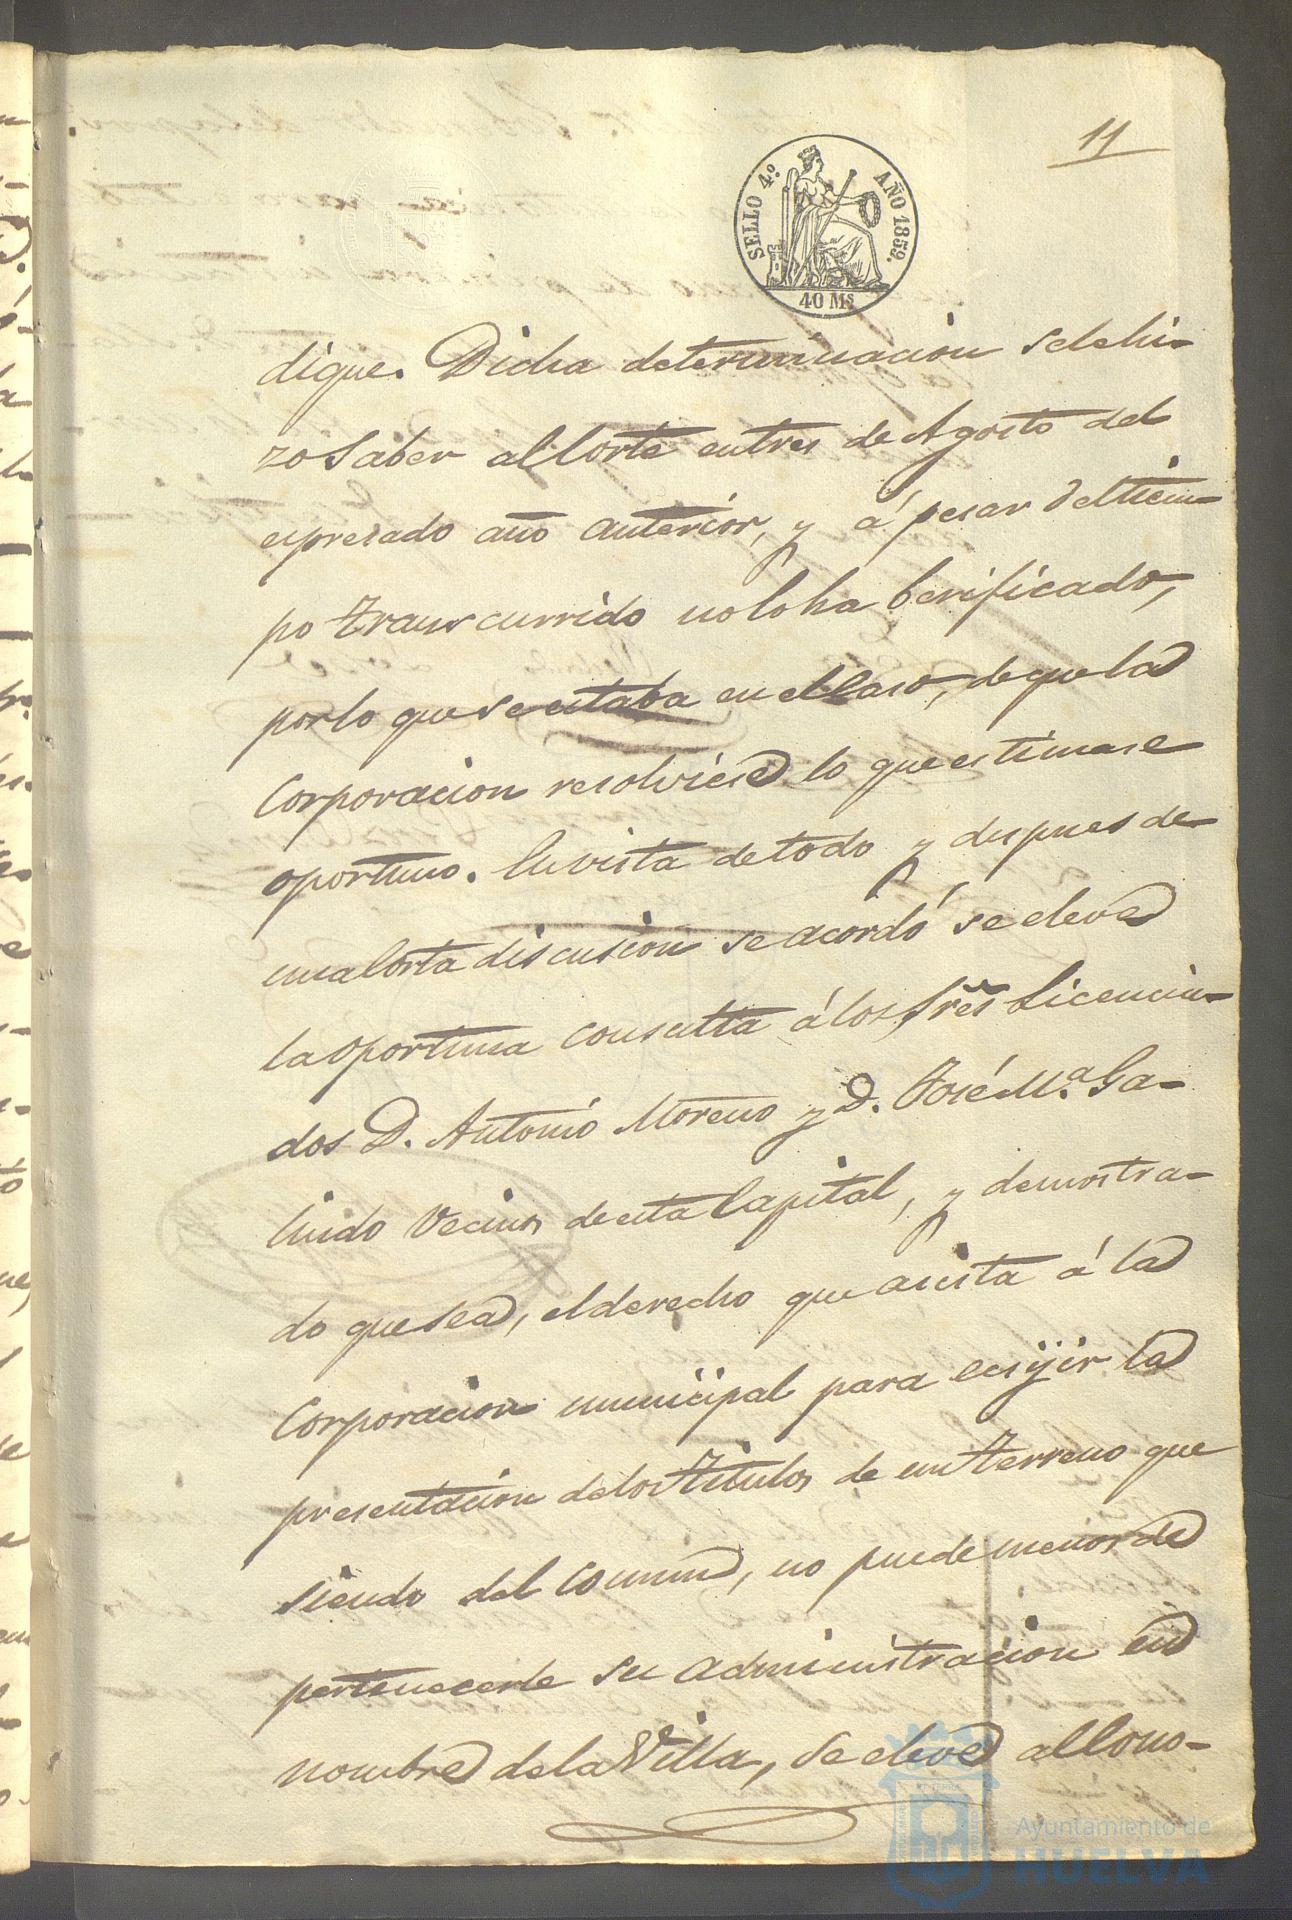 11
SELLO 4.º AÑO 1859.
40 Ms
dique. Dicha determinacion sele hi-
zo saber al Corte en tres de Agosto del
espresado año anterior, y á pesar del tiem-
po transcurrido no lo ha berificado,
por lo que se estaba en el caso, de que la
Corporacion resolviese lo que estimase
oportuno. En vista de todo y despues de
una corta discusion se acordó se eleve
la oportuna consulta á los Sres Licencia-
dos D. Antonio Moreno y D. José M.ª Ga-
lindo vecinos de esta Capital, y demostra-
do que sea, el derecho que asista á la
Corporacion municipal para ecsijir la
presentacion de los titulos de un terreno que
siendo del comun, no puede menos de
pertenecerle su administracion en
nombre de la Villa, se eleve al Cons-
Ayuntamiento de
HUELVA